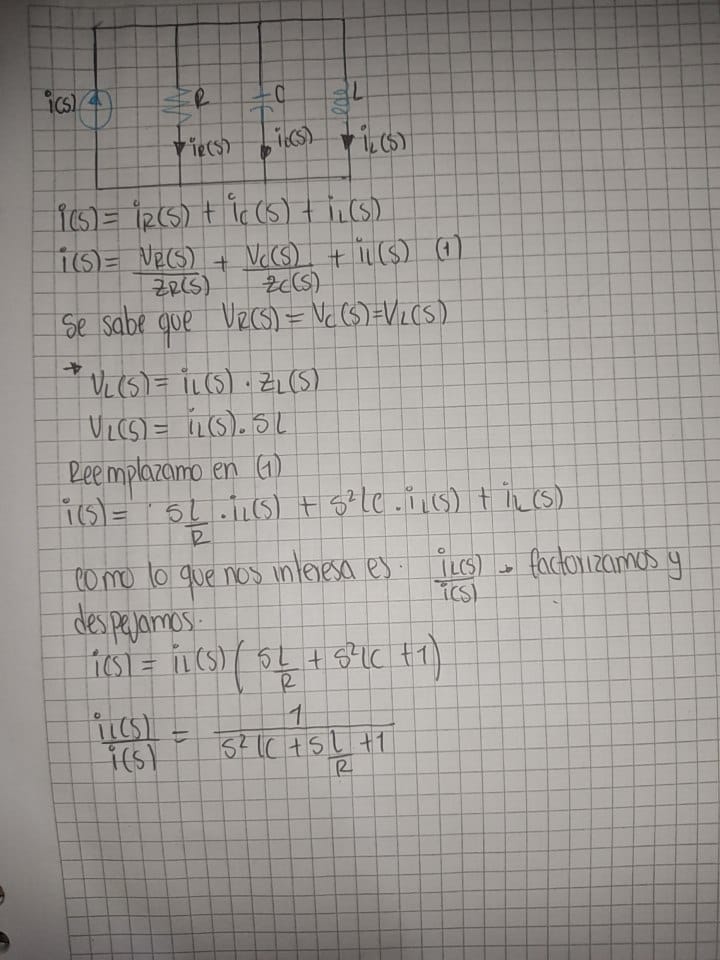 i(s) R C L
iR(s) ic(s) iL(s)
i(s) = iR(s) + ic(s) + iL(s)
i(s) = VR(s)/ZR(s) + Vc(s)/Zc(s) + iL(s) (1)
Se sabe que VR(s) = Vc(s) = VL(s)
→ VL(s) = iL(s) · ZL(s)
VL(s) = iL(s) . SL
Reemplazamo en (1)
i(s) = S L/R . iL(s) + S²LC . iL(s) + iL(s)
como lo que nos interesa es. iL(s)/i(s) → factorizamos y
despejamos.
i(s) = iL(s) ( S L/R + S²LC + 1)
iL(s)/i(s) = 1/(S²LC + S L/R + 1)